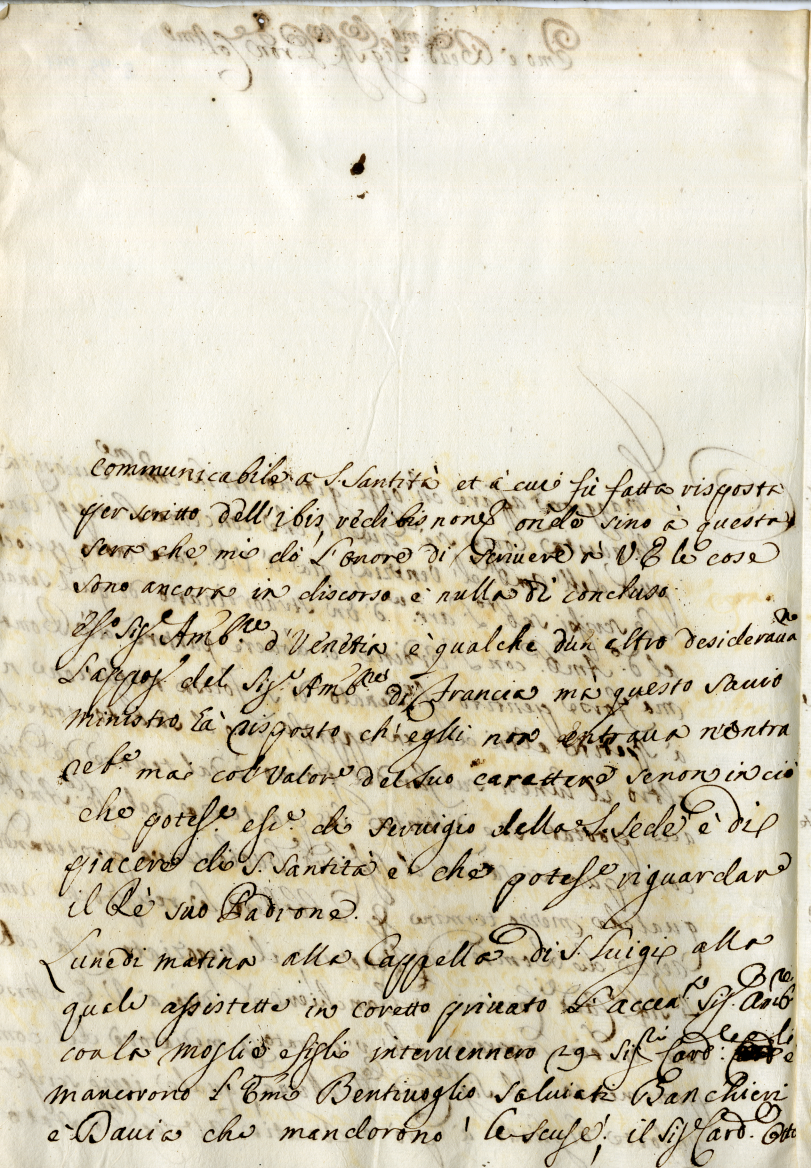 communicabile a S. Santità et à cui fù fatta risposta
per scritto dell' ibis redibis non onde sino à questa
sera che mi dò l'onore di scrivere à V. E. le cose
sono ancora in discorso e nulla di concluso
Sig.r Amb.re d'Venetia e qualche dun altro desiderava
l'appog.o del Sig.r Amb.re di Francia ma questo Savio
ministro hà risposto ch'egli non entrava n'entra
rebe mai col valore del suo carattere senon in ciò
che potesse esse di servigio della S. Sede è di
piacere di S. Santità è che potesse riguardare
il Rè suo Padrone.
Lunedi matina alla Cappella di S. Luigi alla
quale assistette in coretto privato Sig. Amb.re
con la moglie e figli intervennero 29 Sig.ri Card.li e
mancorono l'Emi Bentivoglio Salviati Banchieri
è Davia che mandorono le scuse, il Sig. Card. Otto